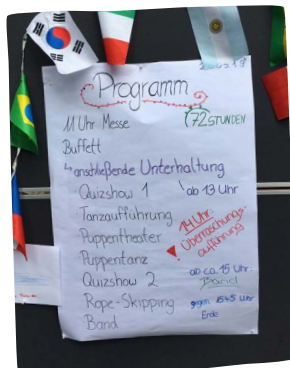 Programm
72 STUNDEN
11 Uhr Messe
Buffett
↳ anschließende Unterhaltung
Quizshow 1
ab 13 Uhr
Tanzaufführung
14 Uhr:
Überraschungs-
aufführung
Puppentheater
Puppentanz
Quizshow 2
ab ca. 15 Uhr:
Band
Rope-Skipping
gegen 1545 Uhr
Ende
Band